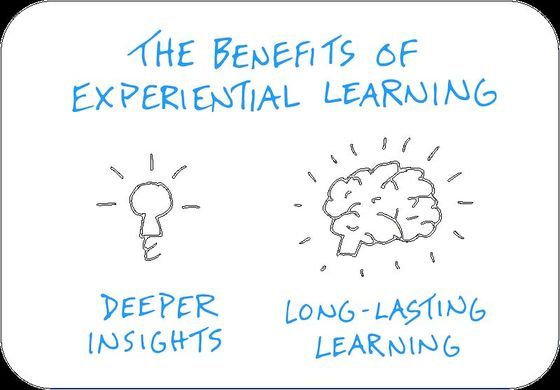 THE BENEFITS OF
EXPERIENTIAL LEARNING
DEEPER
INSIGHTS
LONG-LASTING
LEARNING